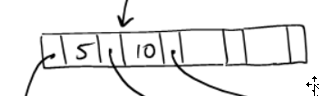 5 10